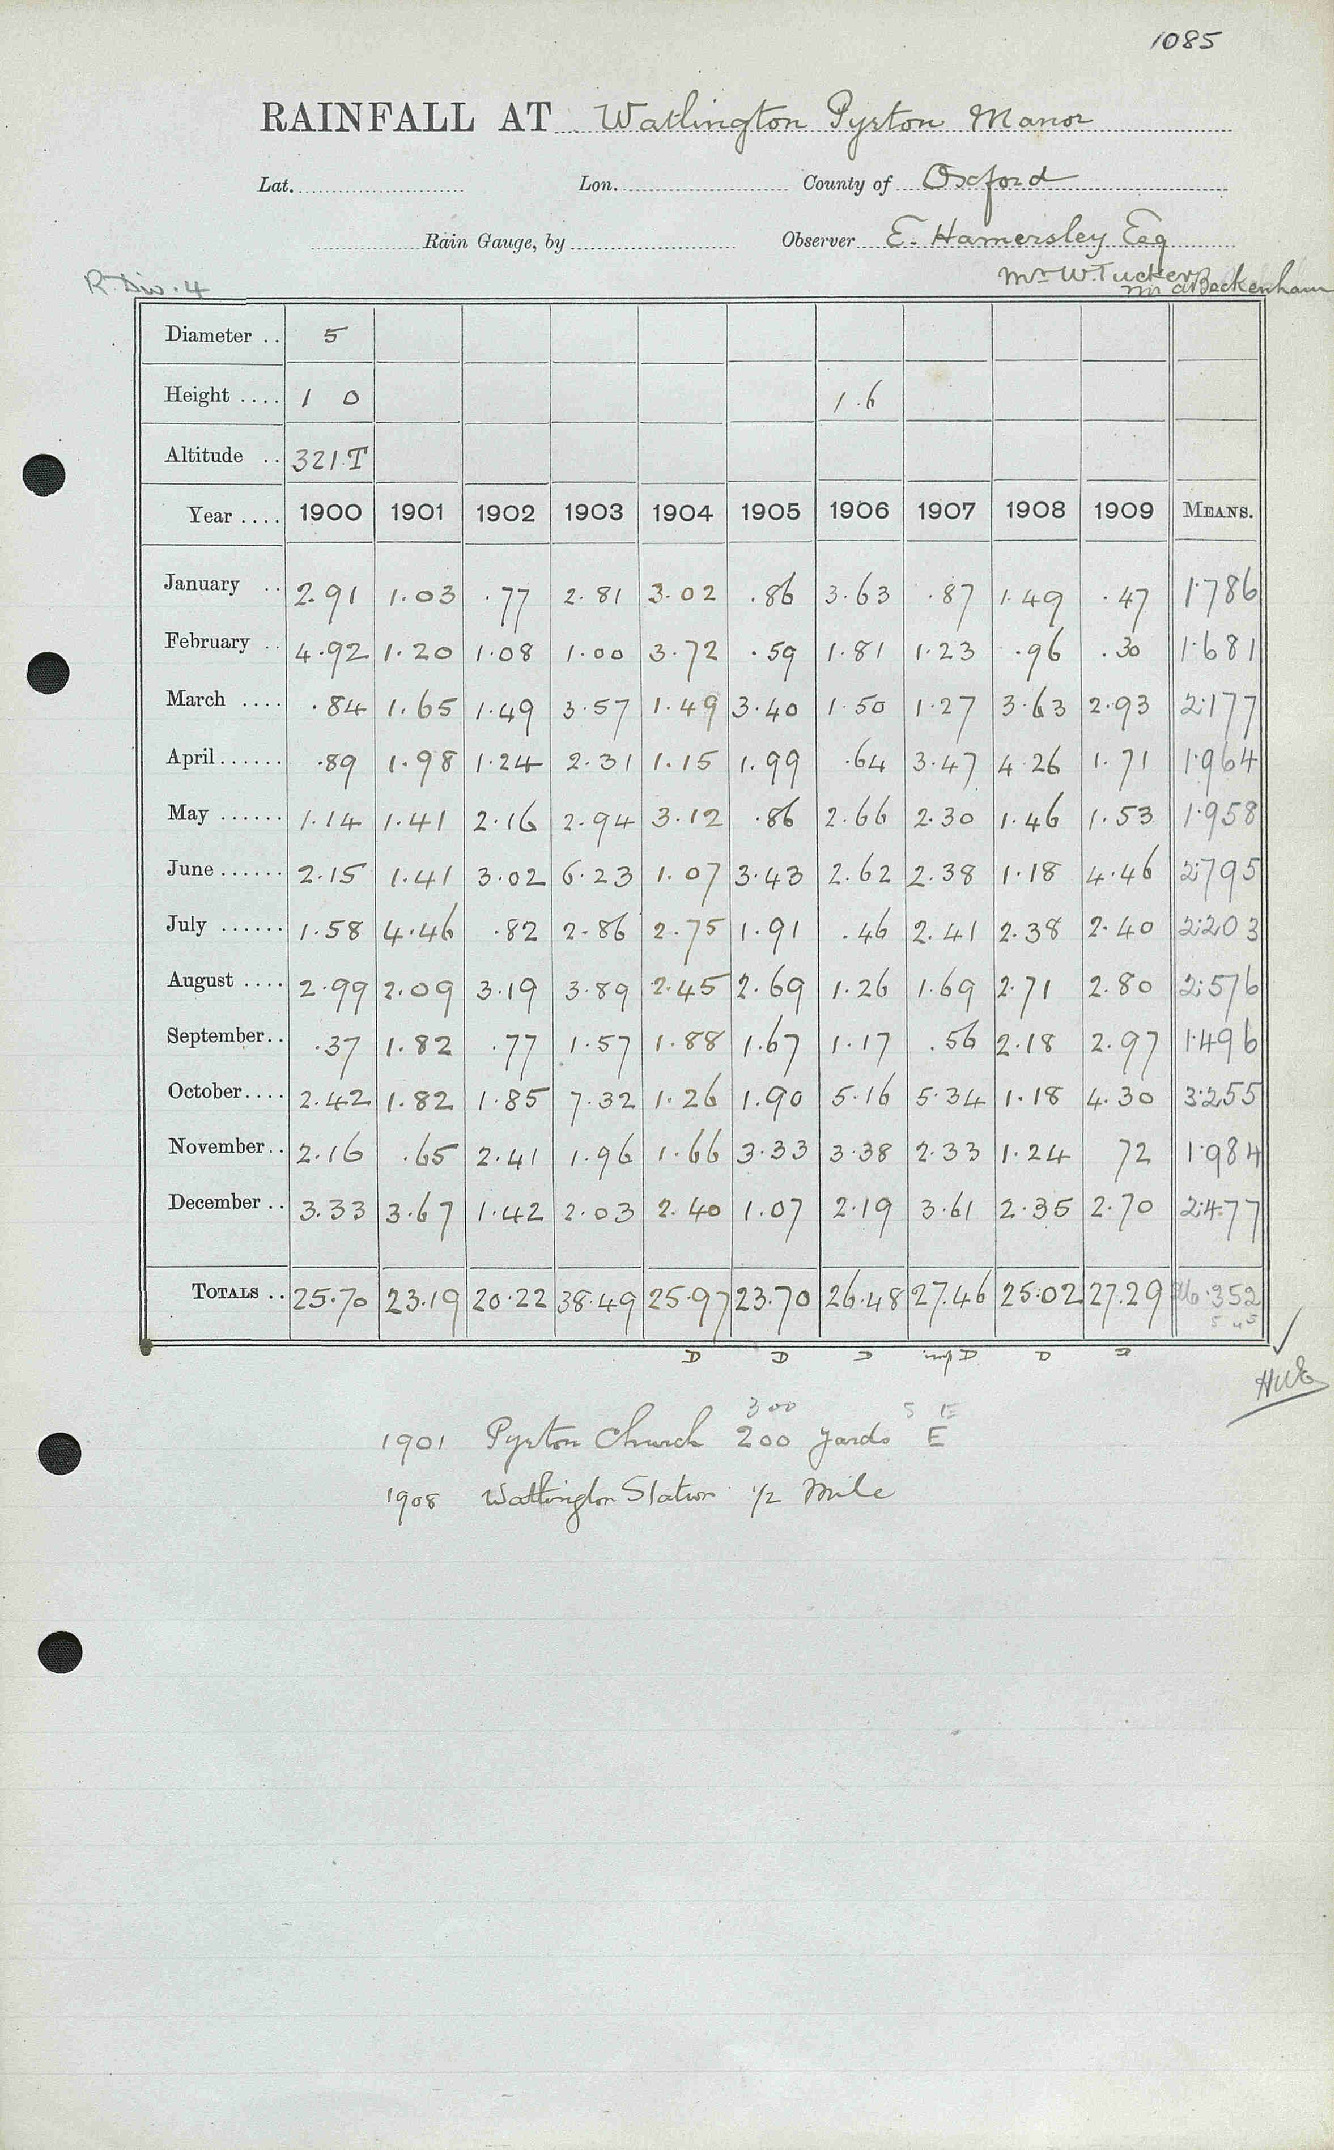 1085
RAINFALL AT Watlington Pyrton Manor
Lat. Lon. County of Oxford
Rain Gauge, by Observer E. Hamersley Esq
Mr W. Tucker
R. Div. 4 Mr A Beckenham
Diameter .. 5
Height .... 1 0 1.6
Altitude .. 321.T
Year .... 1900 1901 1902 1903 1904 1905 1906 1907 1908 1909 MEANS.
January .. 2.91 1.03 .77 2.81 3.02 .86 3.63 .87 1.49 .47 1.786
February .. 4.92 1.20 1.08 1.00 3.72 .59 1.81 1.23 .96 .30 1.681
March .... .84 1.65 1.49 3.57 1.49 3.40 1.50 1.27 3.63 2.93 2.177
April ...... .89 1.98 1.24 2.31 1.15 1.99 .64 3.47 4.26 1.71 1.964
May ...... 1.14 1.41 2.16 2.94 3.12 .86 2.66 2.30 1.46 1.53 1.958
June ...... 2.15 1.41 3.02 6.23 1.07 3.43 2.62 2.38 1.18 4.46 2.795
July ...... 1.58 4.46 .82 2.86 2.75 1.91 .46 2.41 2.38 2.40 2.203
August .... 2.99 2.09 3.19 3.89 2.45 2.69 1.26 1.69 2.71 2.80 2.576
September.. .37 1.82 .77 1.57 1.88 1.67 1.17 .56 2.18 2.97 1.496
October.... 2.42 1.82 1.85 7.32 1.26 1.90 5.16 5.34 1.18 4.30 3.255
November.. 2.16 .65 2.41 1.96 1.66 3.33 3.38 2.33 1.24 72 1.984
December .. 3.33 3.67 1.42 2.03 2.40 1.07 2.19 3.61 2.35 2.70 2.477
TOTALS .. 25.70 23.19 20.22 38.49 25.97 23.70 26.48 27.46 25.02 27.29 26.352
D D D D D D
300 S E
1901 Pyrton Church 200 yards E
1908 Watlington Station 1/2 Mile